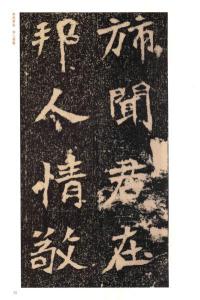 旆聞君在
邦令情敬